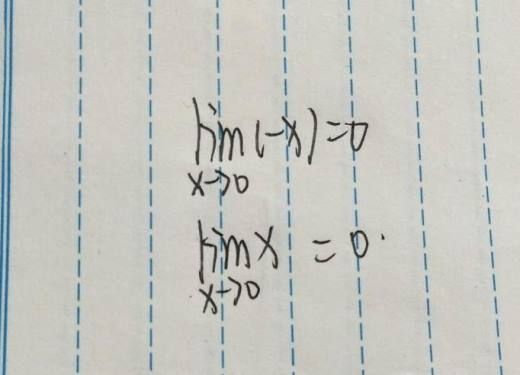 lim(-x)=0
x→0
lim x = 0.
x→0